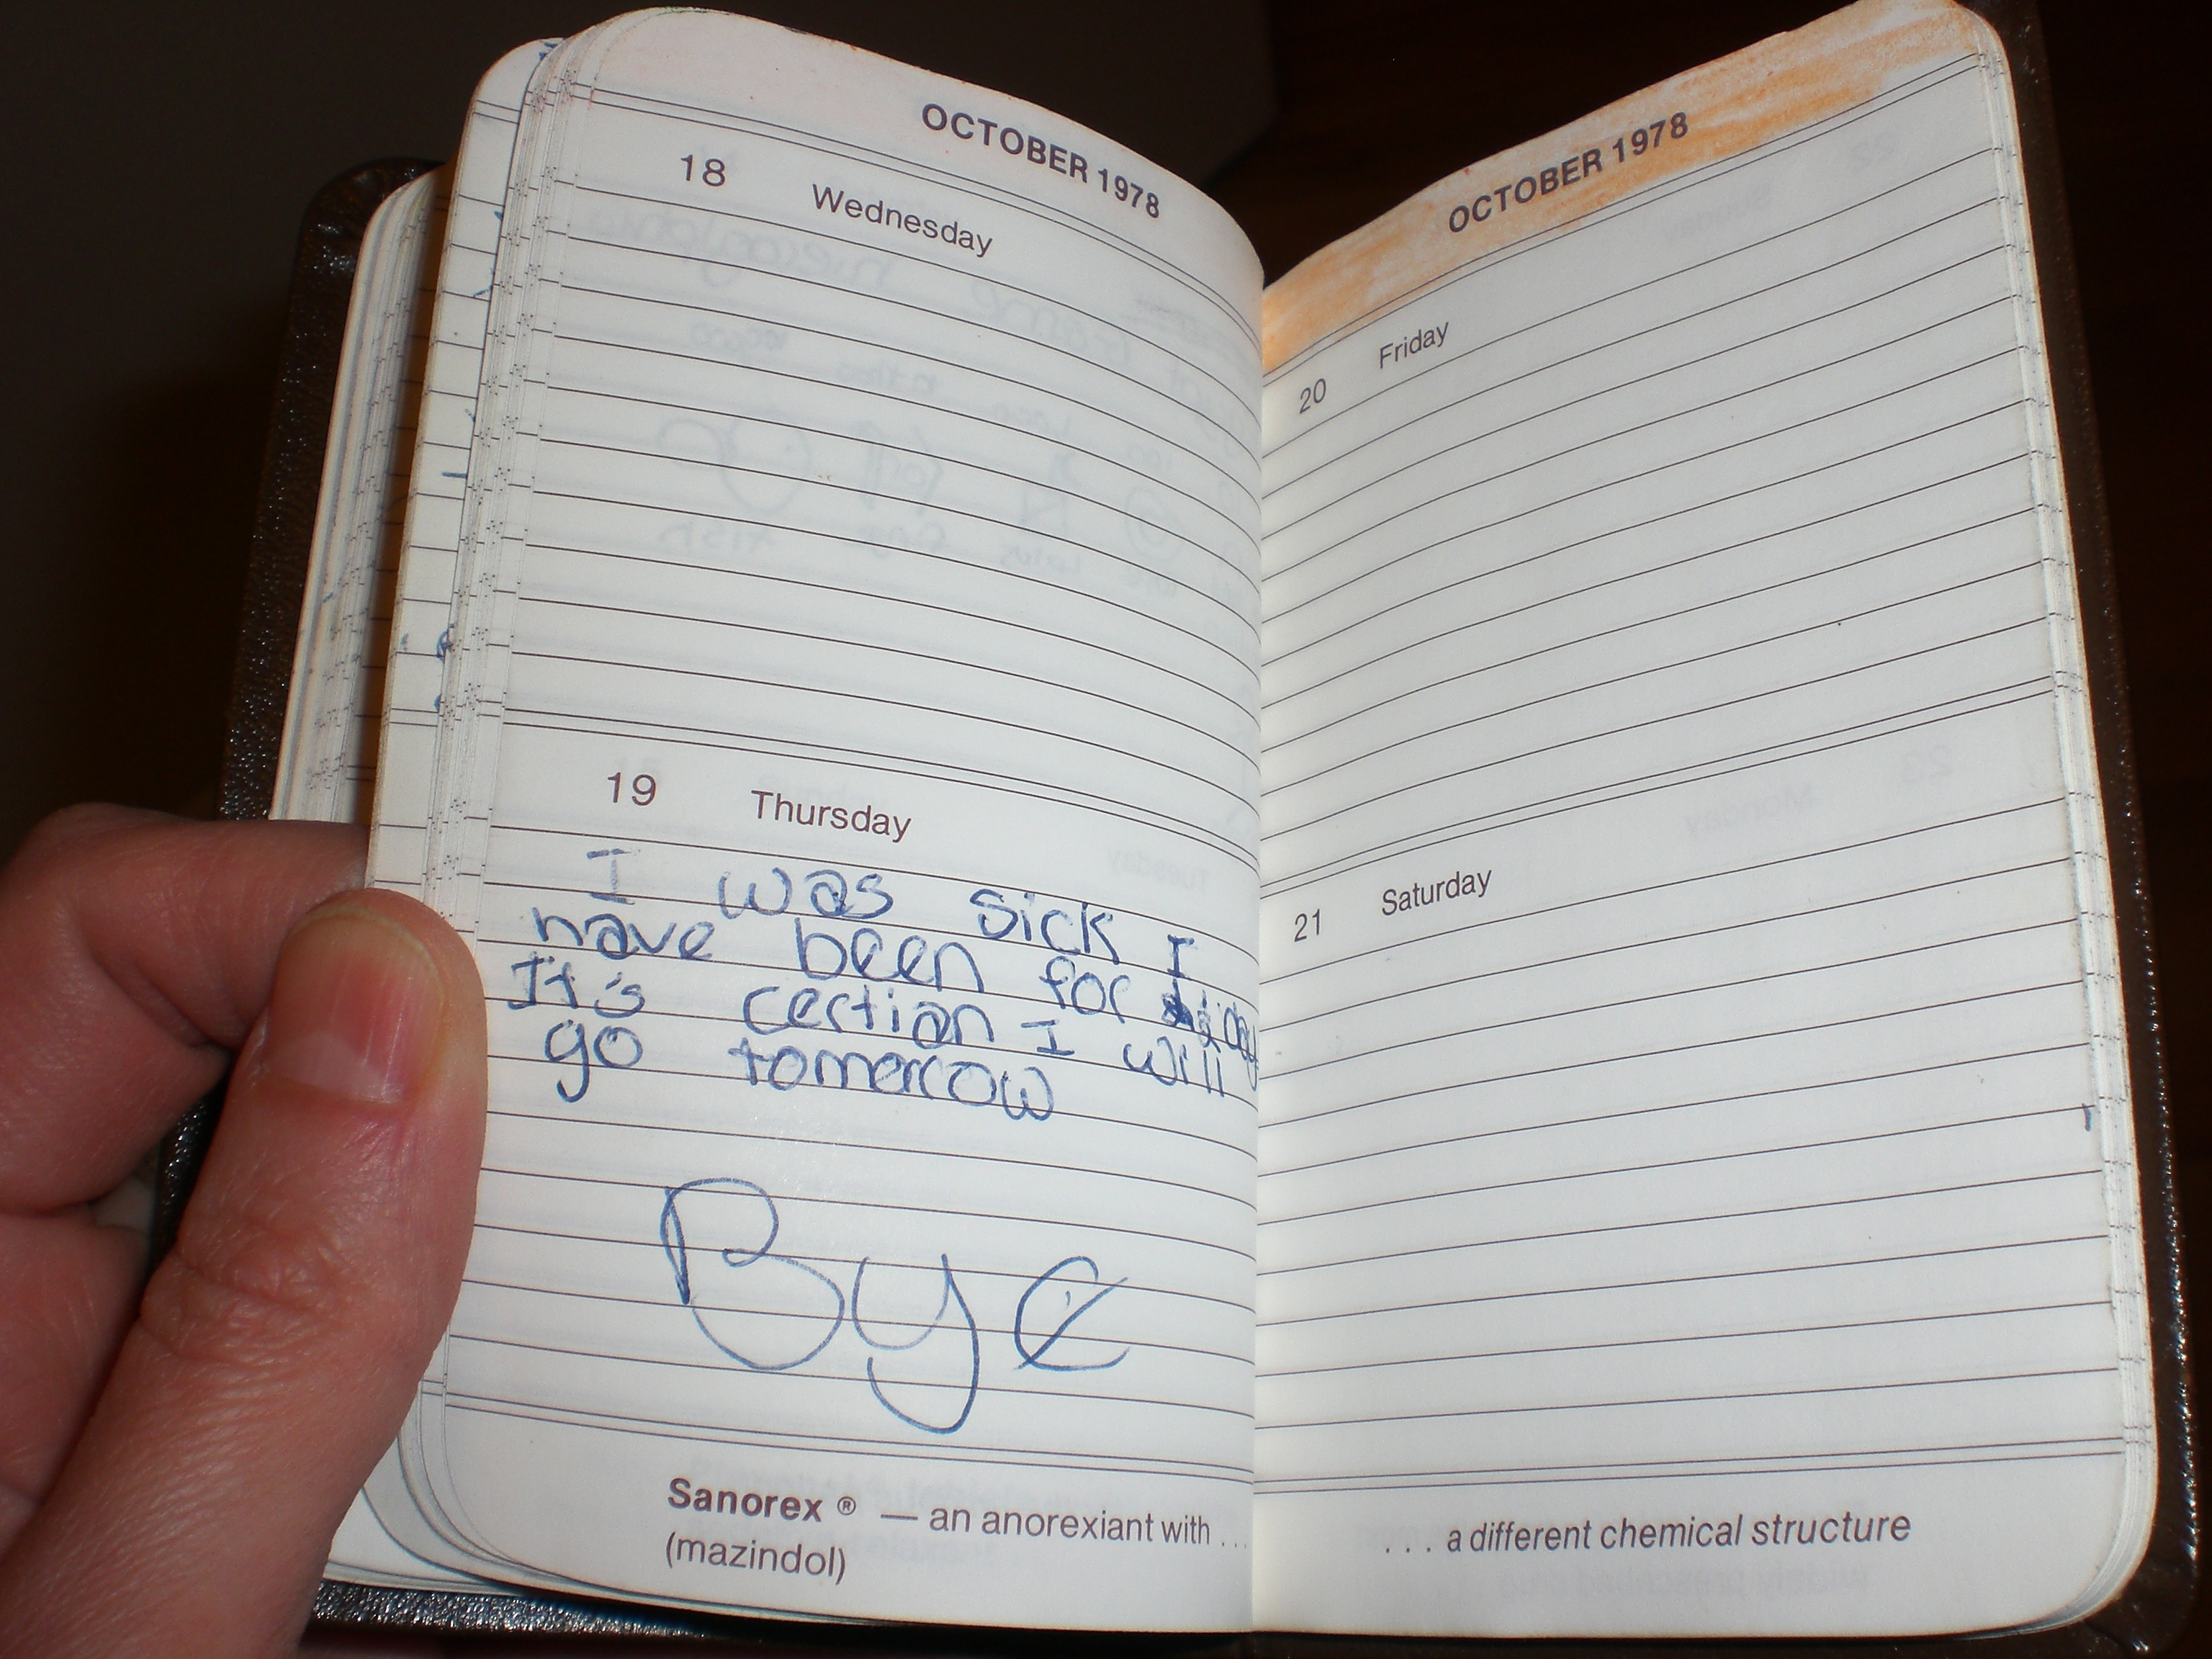 OCTOBER 1978
18 Wednesday
19 Thursday
I was sick I
have been for
It's certian I will
go tomorrow
Bye
Sanorex ® — an anorexiant with ...
(mazindol)
OCTOBER 1978
20 Friday
21 Saturday
... a different chemical structure